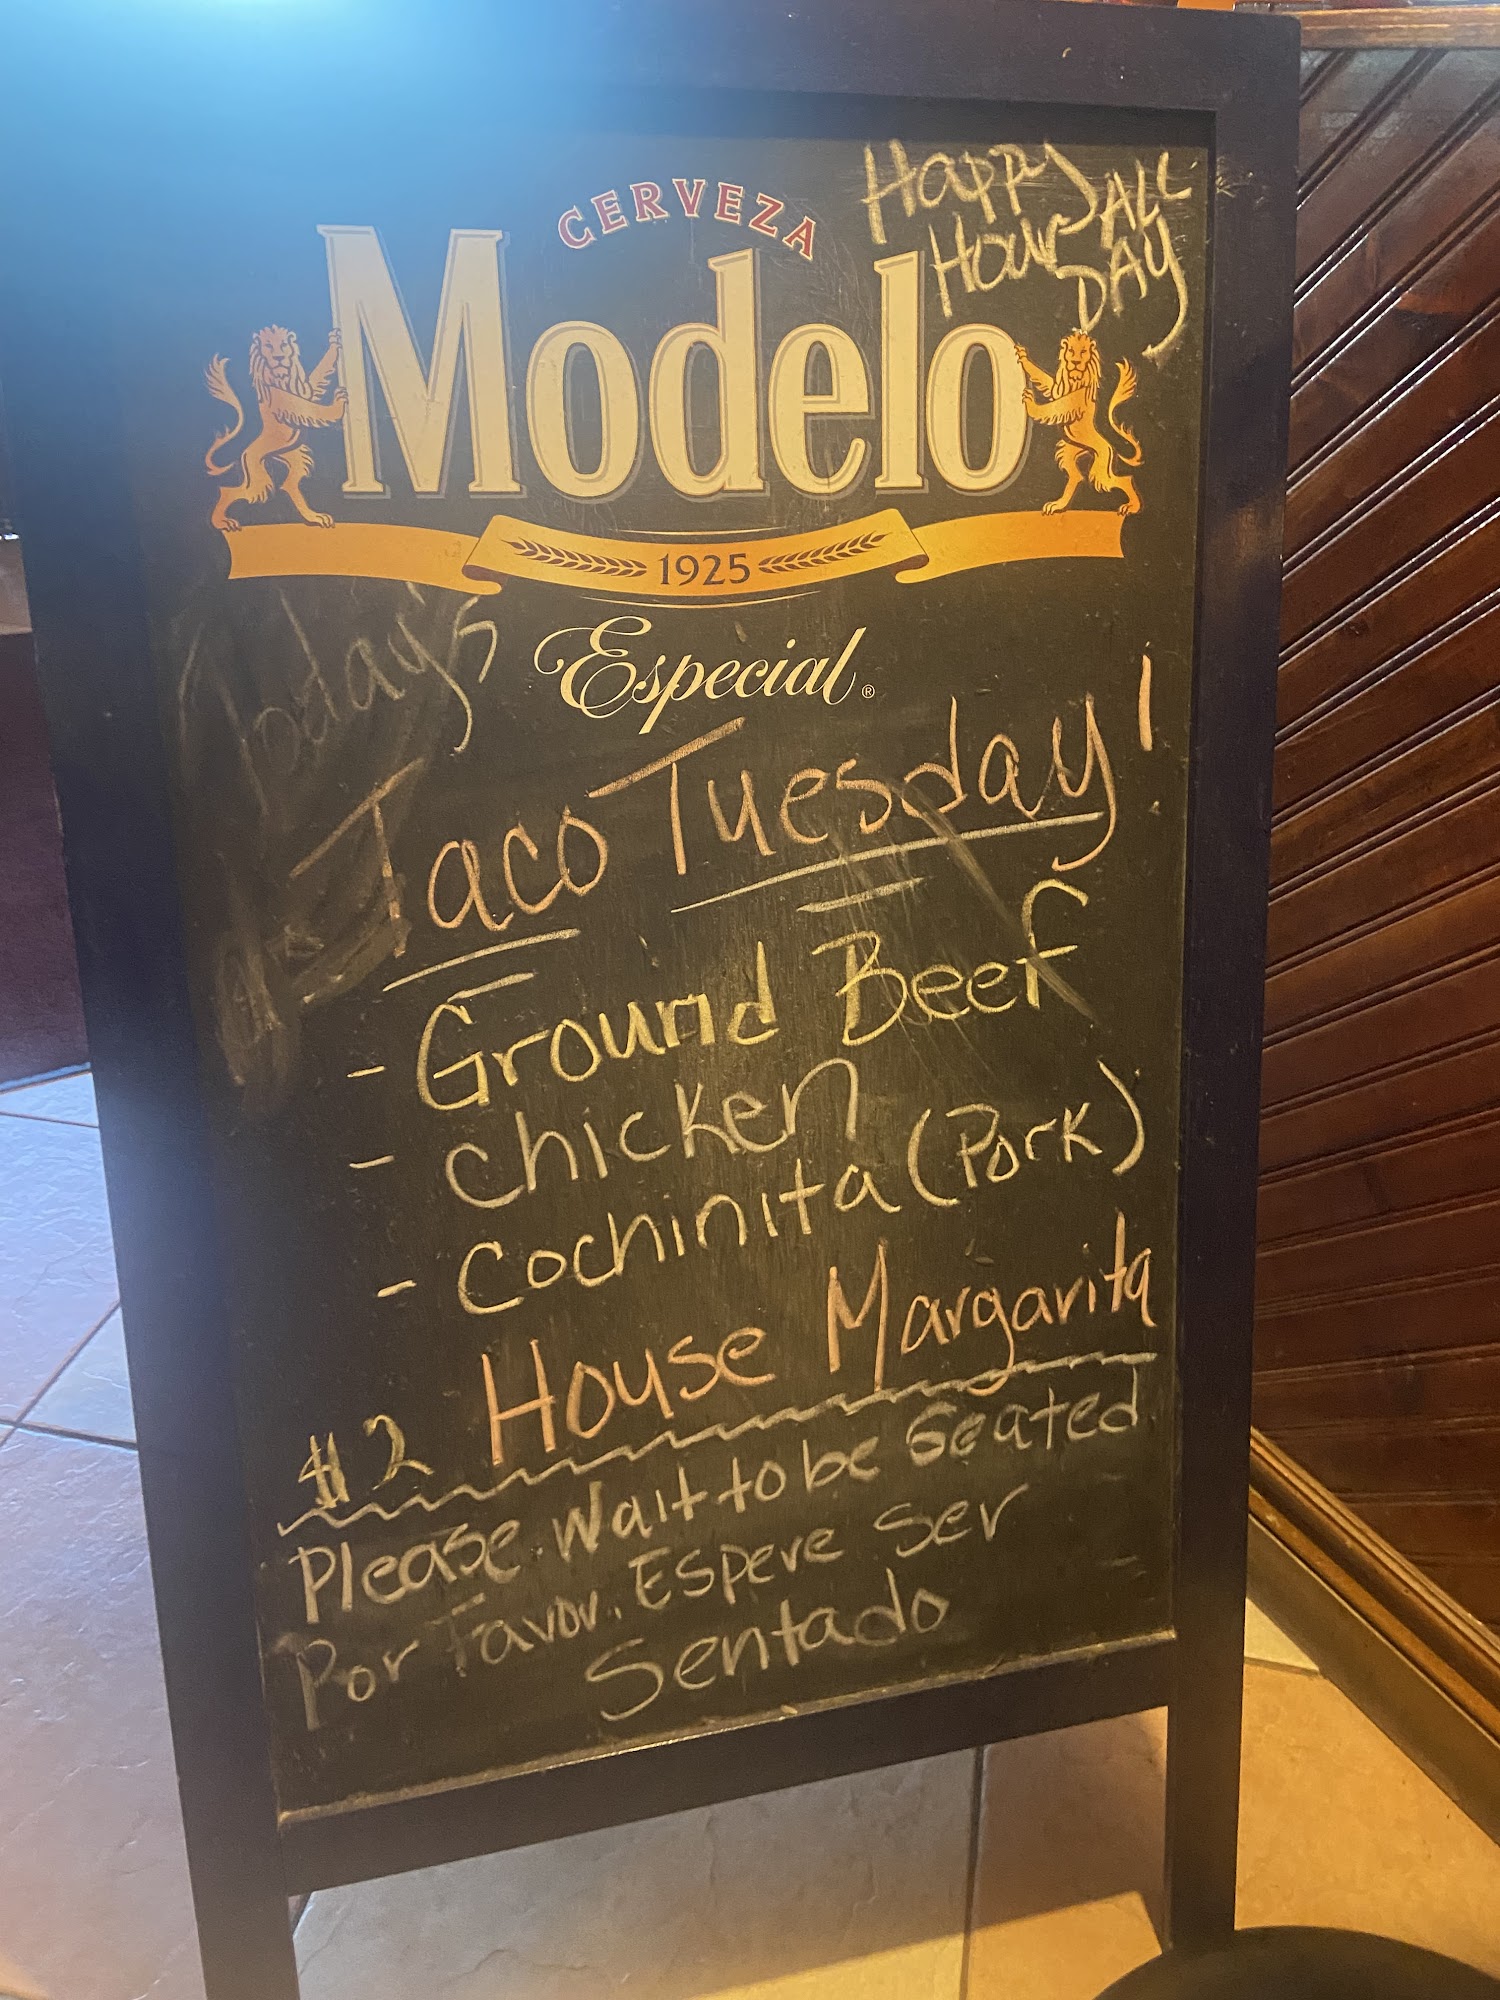 Happy ALL
Hour DAY
CERVEZA
Modelo
1925
Today's
Especial®
Taco Tuesday!
- Ground Beef
- chicken
- Cochinita (Pork)
$2 House Margarita
Please Wait to be Seated
Por Favor. Espere Ser
Sentado